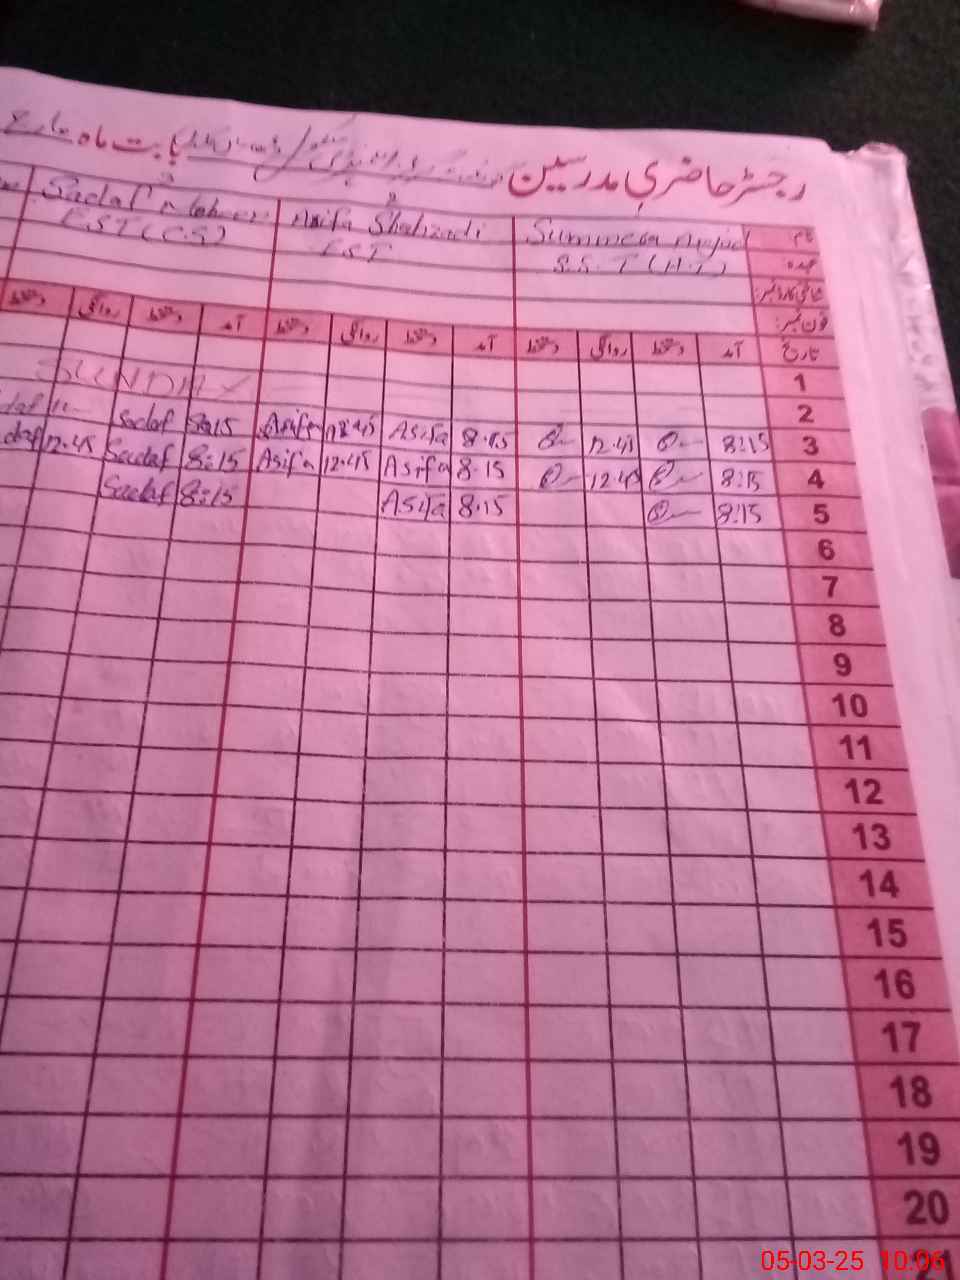 رجسٹر حاضری مدرسین بابت ماہ مارچ
نام Summera Asifa Shahzadi Sadaf
عہدہ S.S.T (H.T) EST EST (C.S)
شناختی کارڈ نمبر:
فون نمبر:
تاریخ آمد دستخط روانگی دستخط آمد دستخط روانگی دستخط آمد دستخط روانگی دستخط
1
2 SUNDAY
3 8:15 12.45 8.15 Asifa 12.45 Asifa 8:15 Sadaf
4 8:15 12.45 8.15 Asifa 12.45 Asifa 8:15 Sadaf 12.45
5 8:15 8.15 Asifa 8:15 Sadaf
6
7
8
9
10
11
12
13
14
15
16
17
18
19
20
21
05-03-25 10:06